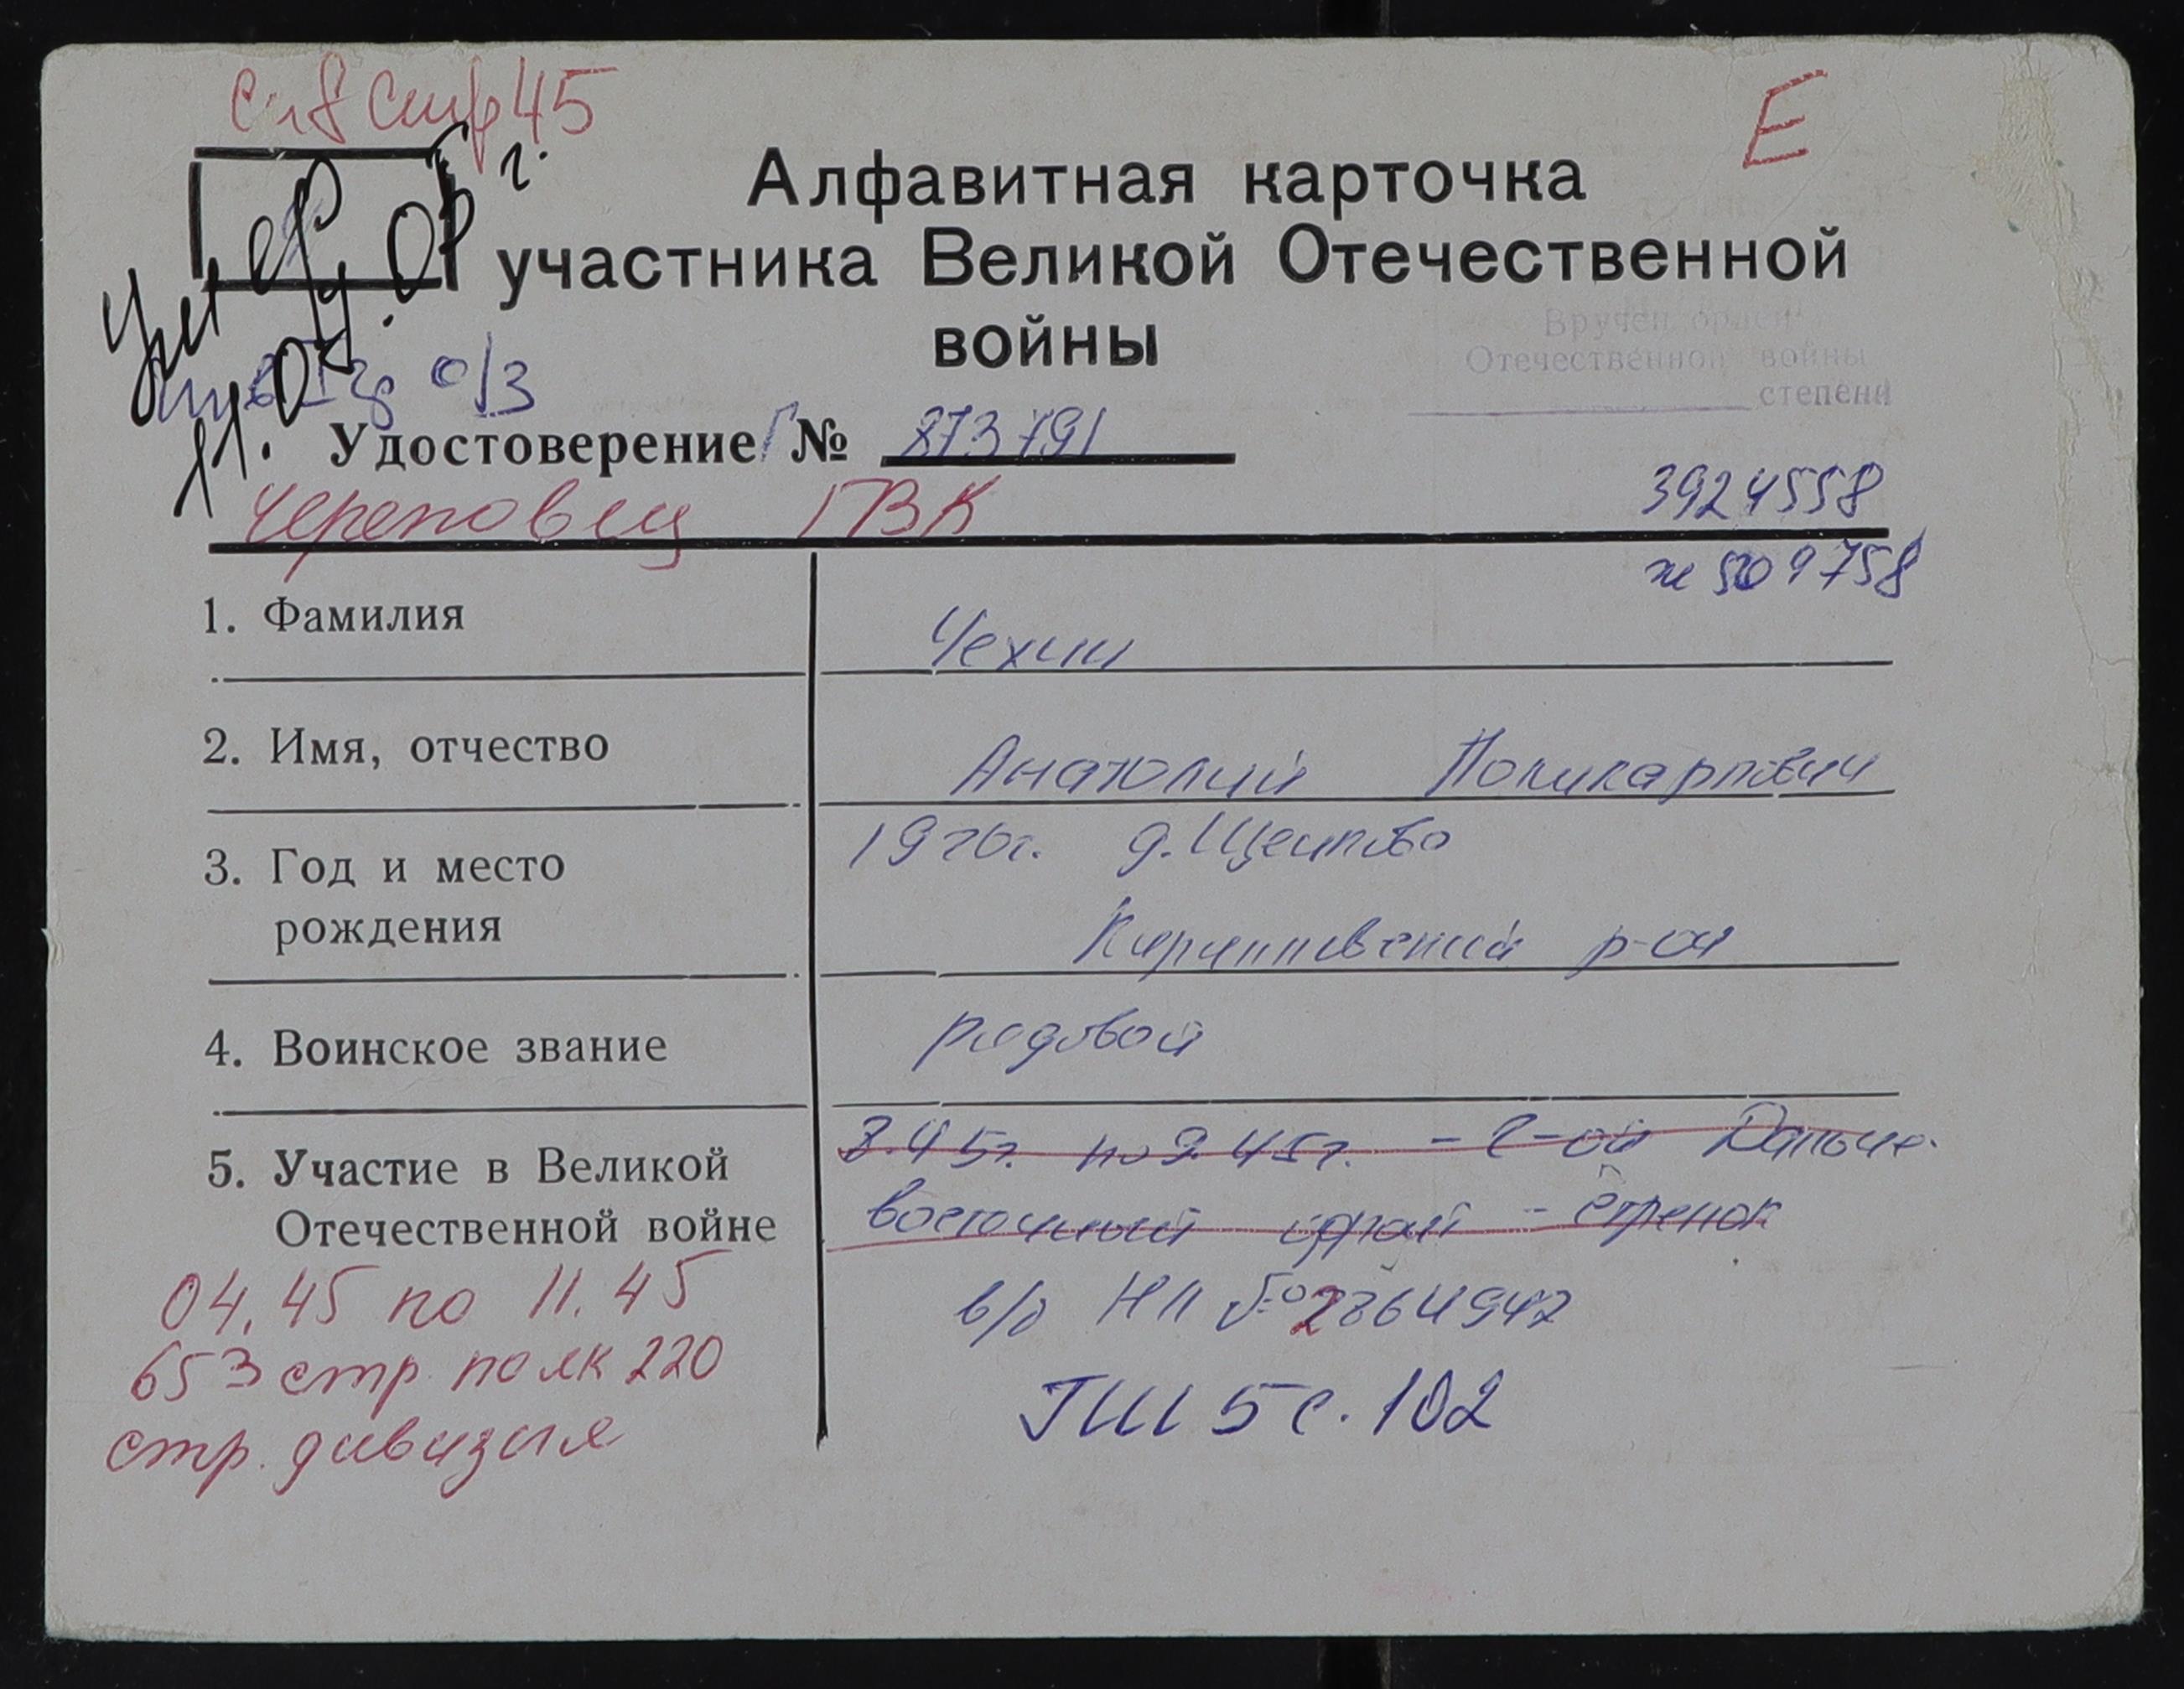 Сп 8 стр 45
Е
Алфавитная карточка
участника Великой Отечественной
войны
Вручен орден
Отечественной войны
степени
о/з
Удостоверение № 873791
Череповец ГВК
3924558
ж 509758
1. Фамилия Чехин
2. Имя, отчество Анатолий Поликарпович
3. Год и место 1926г. д. Щеипово
рождения Кирилловский р-он
4. Воинское звание рядовой
5. Участие в Великой 8.45г. по 9.45г. - 2-ой Дальне-
Отечественной войне восточный фронт - стрелок
04.45 по 11.45 в/б НП №2864947
653 стр. полк 220
ГШ 5 с. 102
стр. дивизия